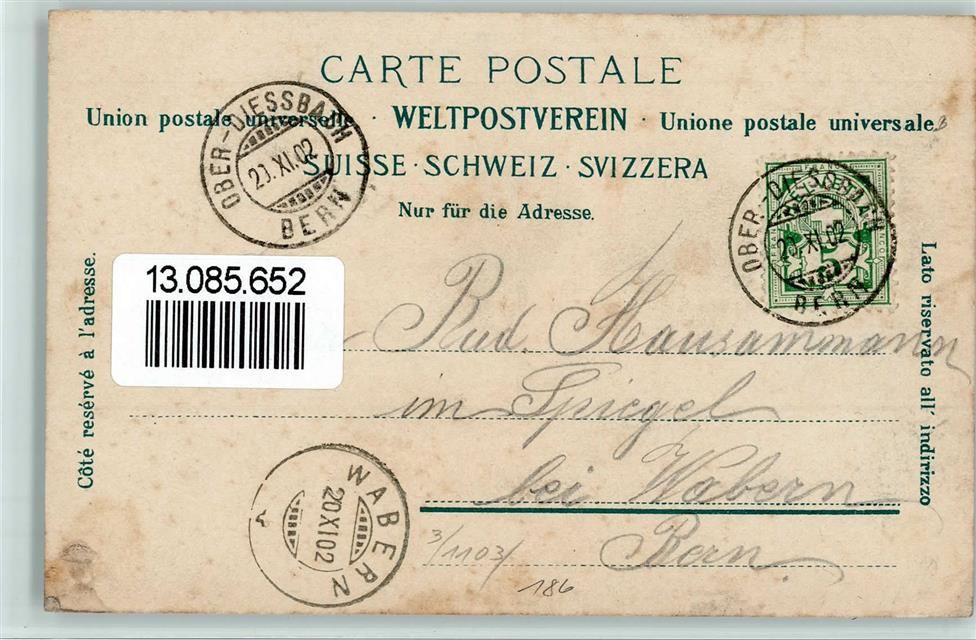 CARTE POSTALE
Union postale universelle · WELTPOSTVEREIN · Unione postale universale
SUISSE · SCHWEIZ · SVIZZERA
Nur für die Adresse.
OBER-DIESSBACH
20.XI.02
BERN
OBER-DIESSBACH
20.XI.02
BERN
13.085.652
Côté resérvé à l'adresse.
Lato riservato all' indirizzo
Rud. Hausammann
im Spiegel
bei Wabern
Bern.
WABERN
20XI02
3/1103/
186